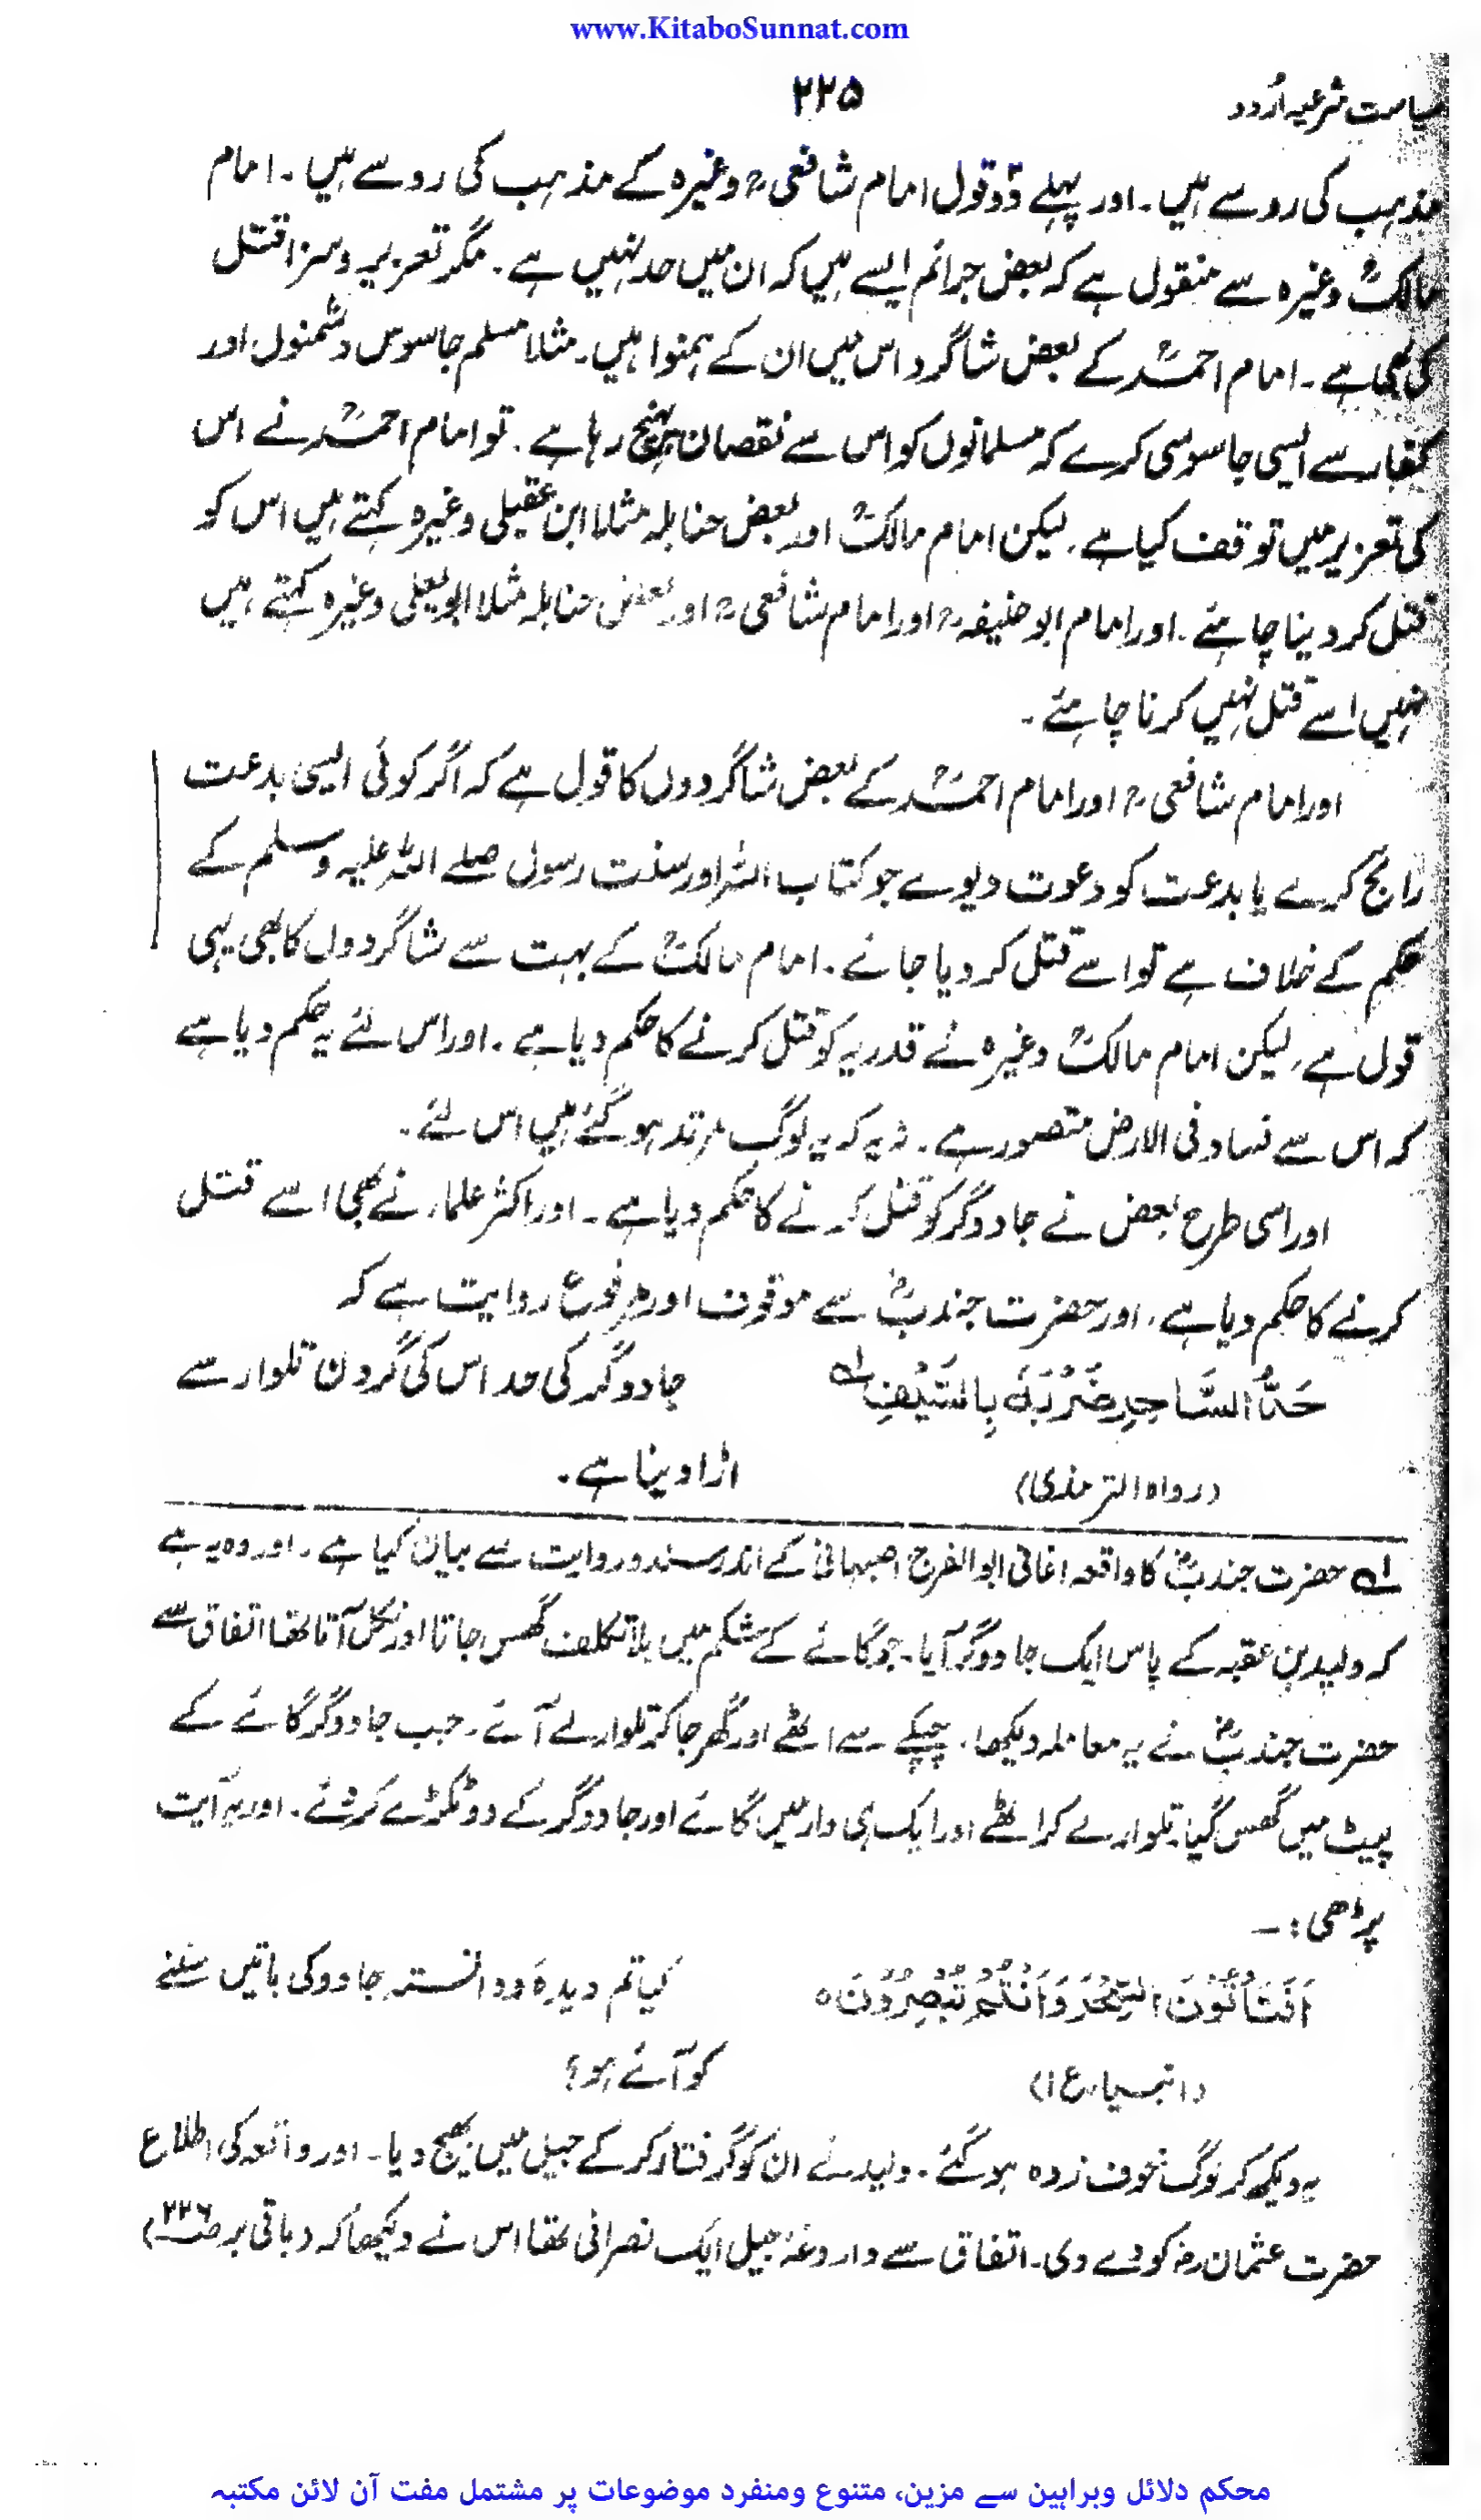 www.KitaboSunnat.com
سیاست شرعیہ اُردو
۲۲۵
مذہب کی رو سے ہیں۔ اور پہلے دو قول امام شافعیؒ وغیرہ کے مذہب کی رو سے ہیں۔ امام
مالکؒ وغیرہ سے منقول ہے کہ بعض جرائم ایسے ہیں کہ ان میں حد نہیں ہے۔ مگر تعزیر و سزا قتل
کی بھی ہے۔ امام احمدؒ کے بعض شاگرد اس میں ان کے ہمنوا ہیں۔ مثلا مسلم جاسوس دشمنوں اور
کفار سے ایسی جاسوسی کرے کہ مسلمانوں کو اس سے نقصان پہنچ رہا ہے۔ تو امام احمدؒ نے اس
کی تعزیر میں توقف کیا ہے، لیکن امام مالکؒ اور بعض حنابلہ مثلا ابن عقیلی وغیرہ کہتے ہیں اس کو
قتل کر دینا چاہئے۔ اور امام ابو حنیفہؒ اور امام شافعیؒ اور بعض حنابلہ مثلا ابو یعلی وغیرہ کہتے ہیں
نہیں اسے قتل نہیں کرنا چاہئے۔
اور امام شافعیؒ اور امام احمدؒ کے بعض شاگردوں کا قول ہے کہ اگر کوئی ایسی بدعت
رائج کرے یا بدعت کو دعوت دیوے جو کتاب اللہ اور سنت رسول صلے اللہ علیہ وسلم کے
حکم کے خلاف ہے تو اسے قتل کر دیا جائے۔ امام مالکؒ کے بہت سے شاگردوں کا بھی یہی
قول ہے، لیکن امام مالکؒ وغیرہ نے قدریہ کو قتل کرنے کا حکم دیا ہے۔ اور اس لئے یہ حکم دیا ہے
کہ اس سے فساد فی الارض متصور ہے۔ نہ یہ کہ یہ لوگ مرتد ہو گئے ہیں اس لئے۔
اور اسی طرح بعض نے جادوگر کو قتل کرنے کا حکم دیا ہے۔ اور اکثر علماء نے بھی اسے قتل
کرنے کا حکم دیا ہے، اور حضرت جندبؓ سے موقوف اور مرفوع روایت ہے کہ
حَدُّ السَّاحِرِ ضَرْبَهٗ بِالسَّيْفِ لہ
جادوگر کی حد اس کی گردن تلوار سے
(رواہ الترمذی)
اڑا دینا ہے۔
لہ حضرت جندبؓ کا واقعہ اغانی ابو الفرج اصبہانی کے اندر سند و روایت سے بیان کیا ہے۔ اور وہ یہ ہے
کہ ولید بن عقبہ کے پاس ایک جادوگر آیا۔ جو گائے کے شکم میں بلا تکلف گھس جاتا اور نکل آتا تھا اتفاق سے
حضرت جندبؓ نے یہ معاملہ دیکھا، چپکے سے اٹھے اور گھر جا کر تلوار لے آئے۔ جب جادوگر گائے کے
پیٹ میں گھس گیا، تلوار لے کر اٹھے اور ایک ہی وار میں گائے اور جادوگر کے دو ٹکڑے کر دئے۔ اور یہ آیت
پڑھی :—
اَفَتَأْتُوْنَ السِّحْرَ وَاَنْتُمْ تُبْصِرُوْنَ ہ
کیا تم دیدہ ودانستہ جادو کی باتیں سننے
(انبیاء ع ۱)
کو آتے ہو؟
یہ دیکھ کر لوگ خوف زدہ ہو گئے۔ ولید نے ان کو گرفتار کر کے جیل میں بھیج دیا۔ اور واقعہ کی اطلاع
حضرت عثمان رض کو دے دی۔ اتفاق سے داروغۂ جیل ایک نصرانی تھا اس نے دیکھا کہ (باقی بر صـ۲۲۶)
محکم دلائل وبراہین سے مزین، متنوع ومنفرد موضوعات پر مشتمل مفت آن لائن مکتبہ